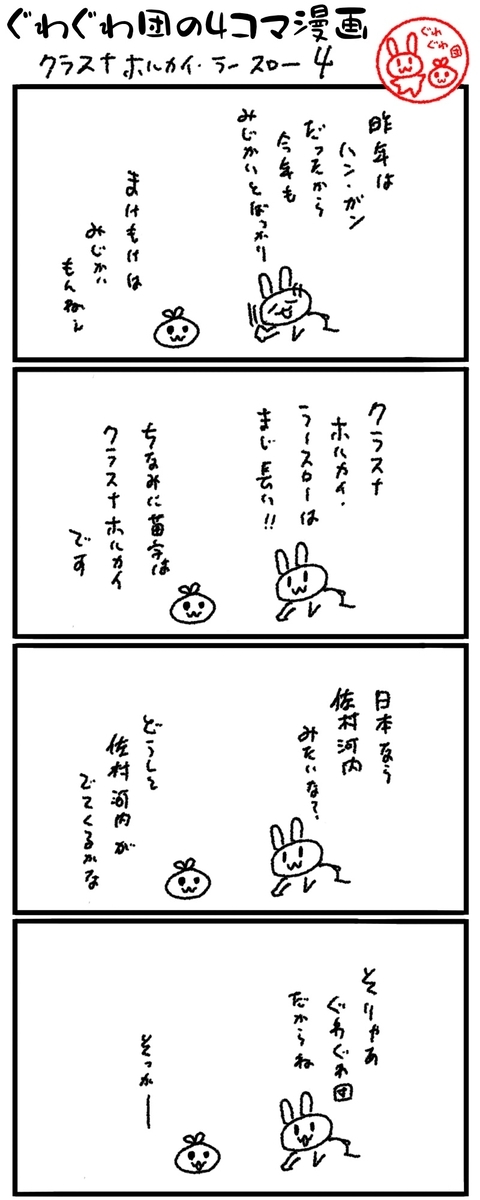 ぐわぐわ団の4コマ漫画
クラスナホルカイ・ラースロー4
ぐわ
ぐわ
団
昨年は
ハン・ガン
だったから
今年も
みじかいとばっかり
まけもけは
みじかい
もんねぇ
クラスナ
ホルカイ・
ラースローは
まじ長い!!
ちなみに苗字は
クラスナホルカイ
です
日本なら
佐村河内
みたいな?
どうして
佐村河内が
でてくるかな
そりゃあ
ぐわぐわ団
だからね
そっかー